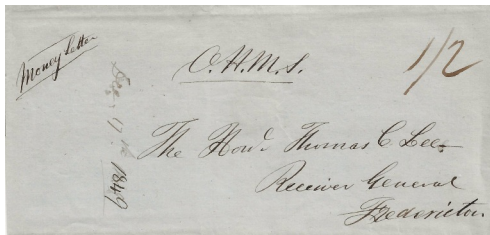 Money Letter
O.H.M.S.
1/2
Dec. 11 1849
The Hon. Thomas C Lee
Receiver General
Fredericton